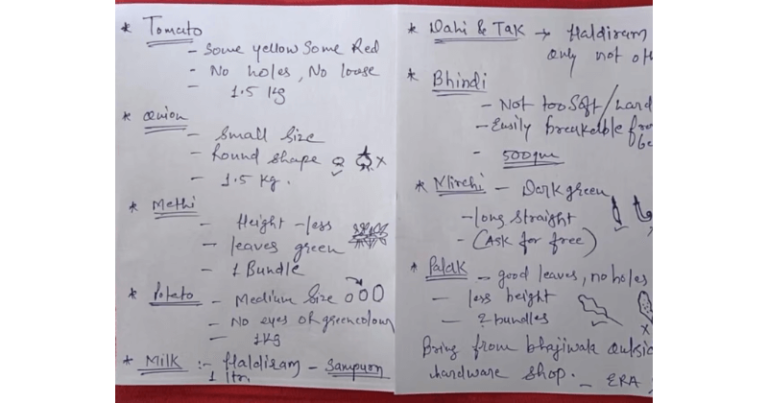 * Tomato
- Some yellow Some Red
- No holes, No loose
- 1.5 kg
* Onion
- Small size
- Round shape
- 1.5 kg.
* Methi
- Height - less
- leaves green
- 1 Bundle
* Potato - Medium Size
- No eyes or green colour
- 1 kg
* Milk :- Haldiram - Sampurn
1 ltr.
* Dahi & Tak → Haldiram
only not oth
* Bhindi
- Not too Soft/hard
- Easily breakable fro
- 500gm
* Mirchi - Dark green
- long straight
- (Ask for free)
* Palak - good leaves, no holes
- less height
- 2 bundles
Bring from bhajiwala outsid
hardware shop. - ERA